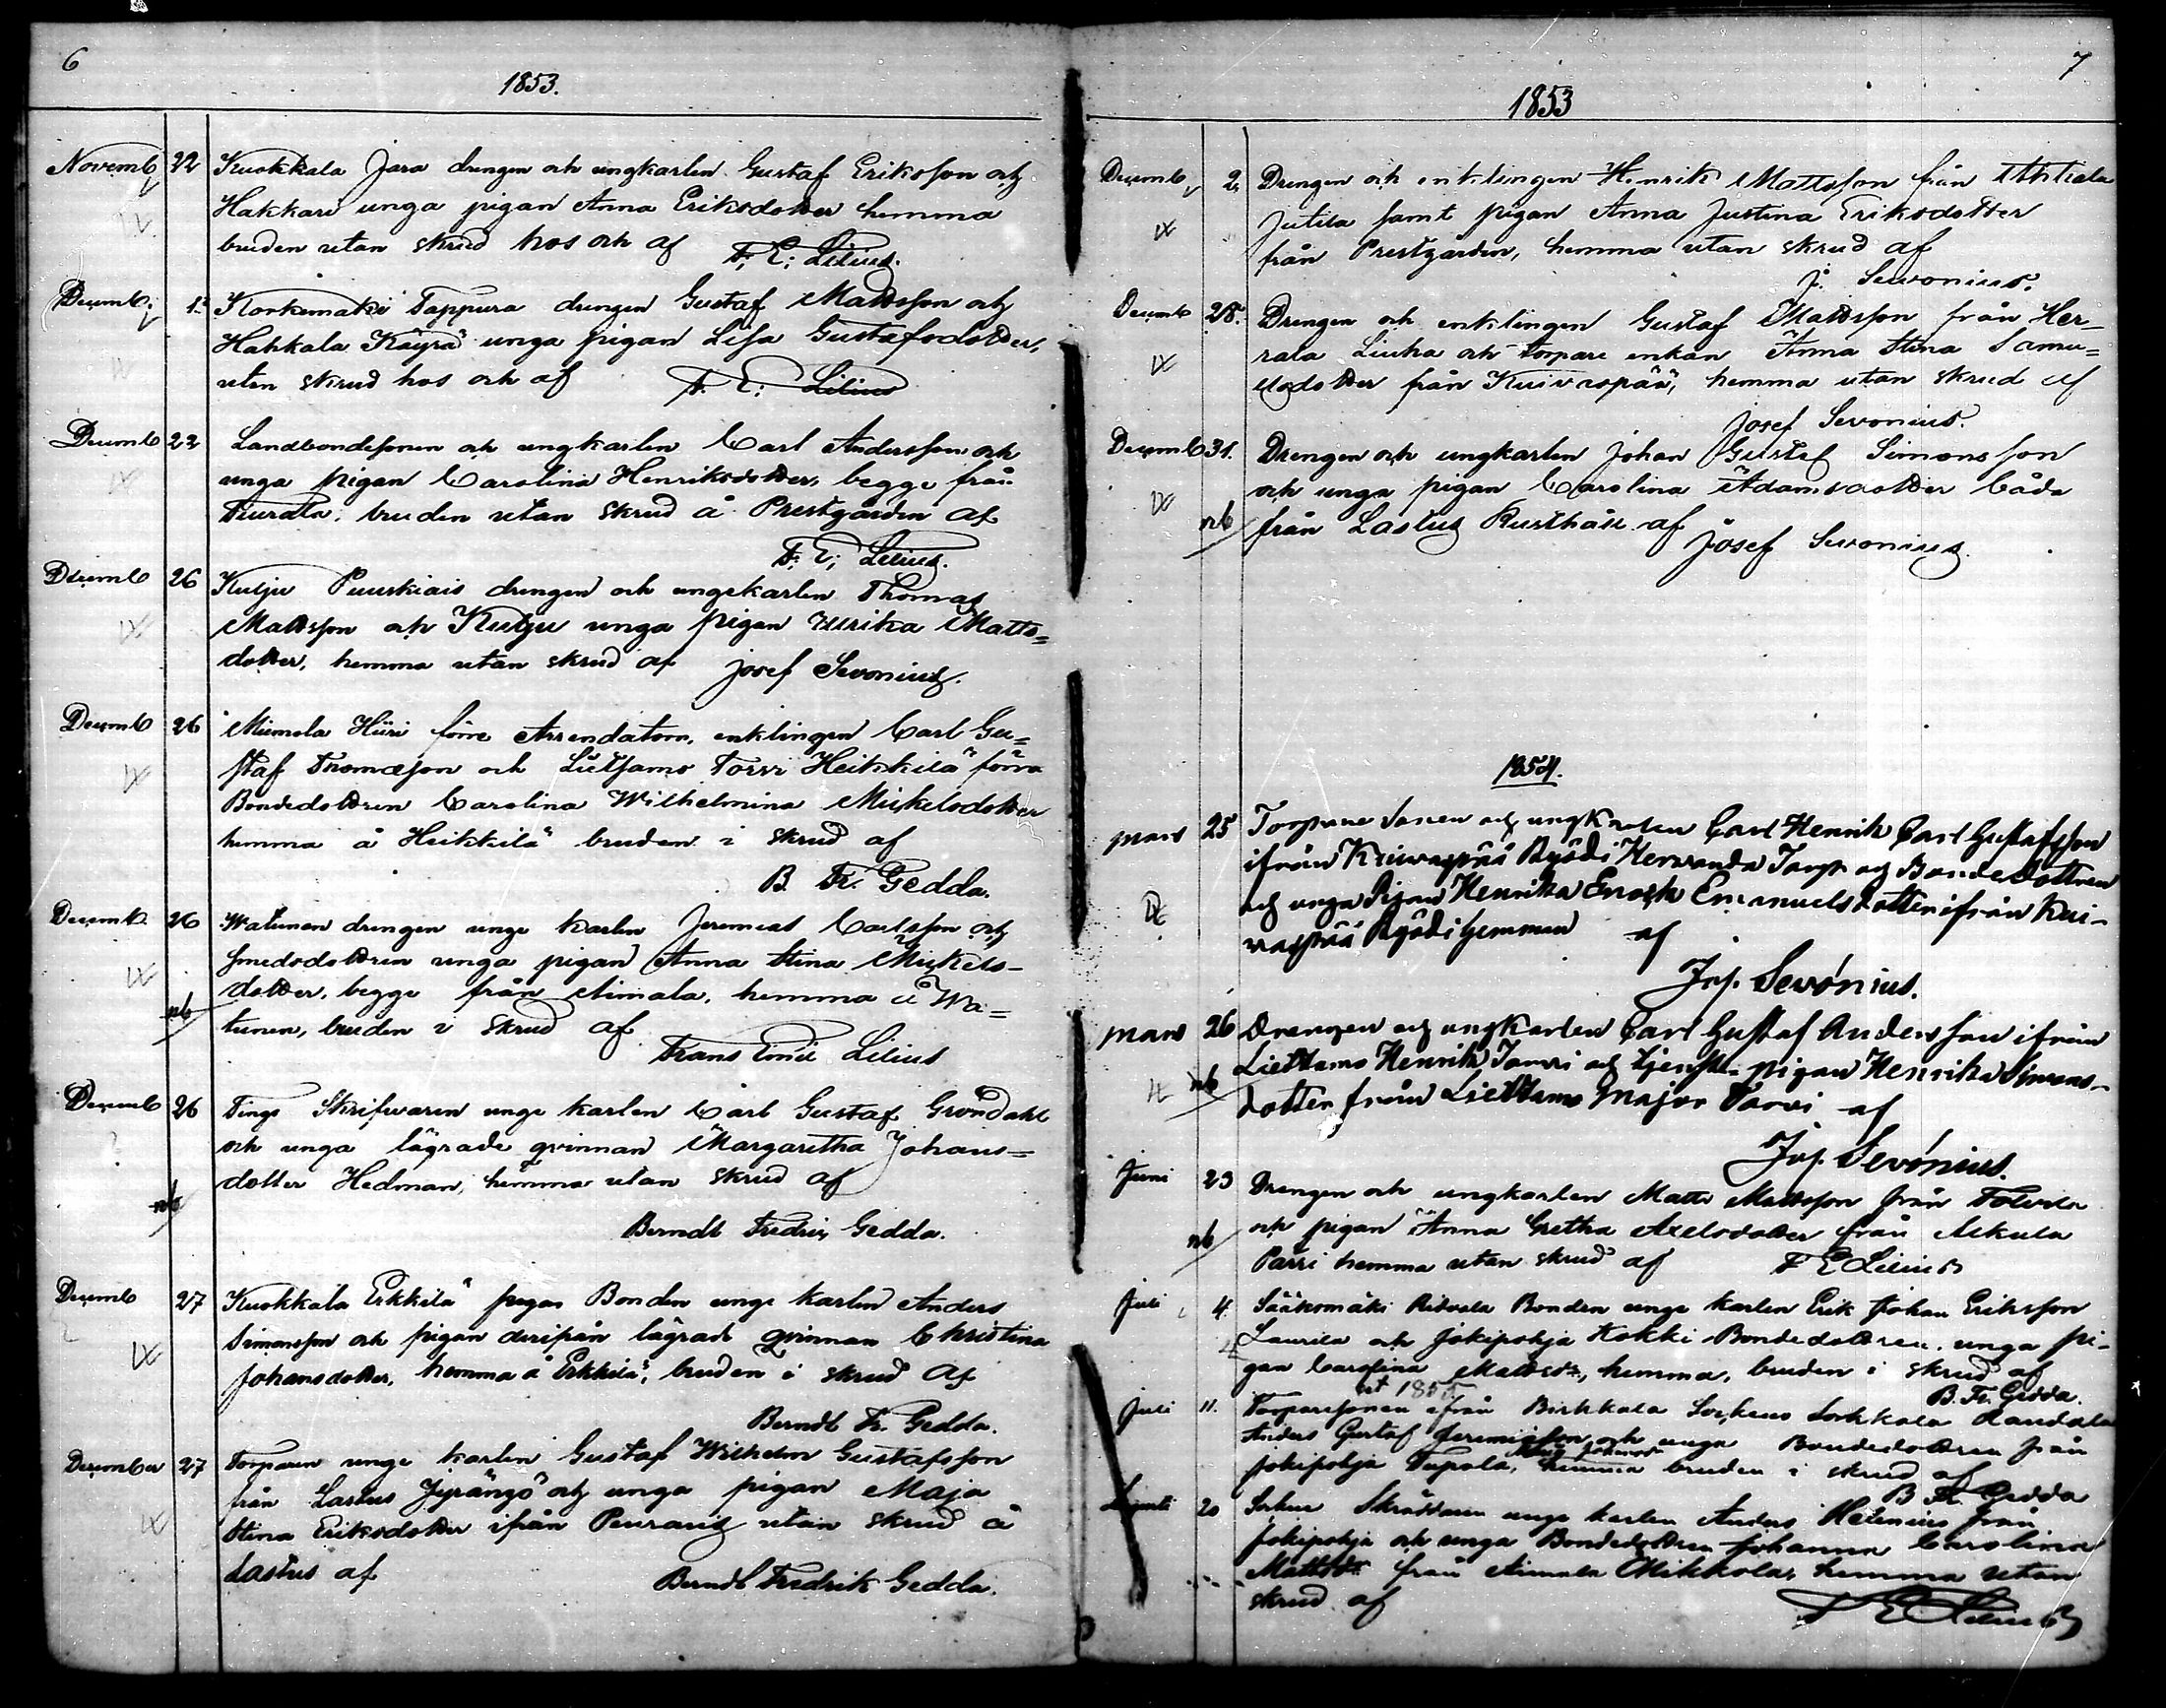 6
1853.
Novemb 22 Kuokkala Jara drengen och ungkarlen Gustaf Eriksson och
Hakkari unga pigan Anna Eriksdotter hemma
bruden utan skrud hos och af F. E. Lilius.
Decemb 1 Korkemäki Tappura drengen Gustaf Mattsson och
Hahkala Käyrä unga pigan Lisa Gustafsdotter,
utan skrud hos och af F. E. Lilius
Decemb 22 Landbondesonen och ungkarlen Carl Andersson och
unga pigan Carolina Henriksdotter, begge från
bruden utan skrud å Prestgården af
F. E. Lilius.
Decemb 26 Kulju Puuskiais drengen och ungkarlen Thomas
Mattsson och Kulju unga pigan Ulrika Matts=
dotter, hemma utan skrud af Josef Sevonius.
Decemb 26 Miemola Hiiri förre Arrendatorn, enklingen Carl Gu=
staf Thomasson och Lietsamo Torvi Heikkilä förra
Bondedottren Carolina Wilhelmina Mickelsdotter
hemma å Heikkilä bruden i skrud af
B. Fr. Gedda.
Decemb. 26 Watunen drengen unge karlen Jeremias Carlsson och
smedsdottren unga pigan Anna Stina Mickels-
dotter, begge från Aimala, hemma å Wa=
nb
tunen, bruden i skrud af
Frans Emil Lilius
Decemb 26 Tings Skrifvaren unge karlen Carl Gustaf Gröndahl
?
och unga lägrade qvinnan Margaretha Johans=
dotter Hedman, hemma utan skrud af
nb
Berndt Fredrik Gedda.
Decemb 27 Kuokkala Erkkilä Bonden unge karlen Anders
Simonsson och pigan derifrån lägrade qvinnan Christina
Johansdotter, hemma å Erkkilä, bruden i skrud af
Berndt Fr. Gedda.
December 27 Torparen unge karlen Gustaf Wilhelm Gustafsson
från Lastus Jyrängö och unga pigan Maja
Stina Eriksdotter ifrån utan skrud å
Lastus af Berndt Fredrik Gedda.
7
1853
Decemb 2. Drengen och enklingen Henrik Mattsson från Ahtiala
Jutila samt pigan Anna Justina Eriksdotter
från Prestgården, hemma utan skrud af
J. Sevonius.
Decemb 28. Drengen och enklingen Gustaf Mattsson från Her-
rala Liuha och torpare enkan Anna Stina Samu=
elsdotter från Kuivaspää, hemma utan skrud af
Josef Sevonius.
Decemb 31. Drengen och ungkarlen Johan Gustaf Simonsson
och unga pigan Carolina Adamsdotter båda
nb från Lastus Rusthåll af
Josef Sevonius.
1854.
Mars 25 Torpare sonen och ungkarlen Carl Henrik Carl Gustafsson
ifrån Kuivaspää Rysödi Torp och Bondedottren
och unga Pigan Henrika Enosh Emanuelsdotter ifrån Kui-
vaspää Rysödi hemman af
Jos. Sevónius.
Mars 26 Drengen och ungkarlen Carl Gustaf Andersson ifrån
nb Liettamo Henrik, och tjenste-pigan Henrika Simons-
dotter från Liettamo Major Torvi af
Jos. Sevónius.
Juni 23 Drengen och ungkarlen Matts Mattsson från Tolvila
nb och pigan Anna Gretha Axelsdotter från Alkula
Pärri hemma utan skrud af F E Lilius
Juli 4. Sääksmäki Ridvala Bonden unge karlen Erik Johan Eriksson
Laurila och Jokipohja Kokki Bondedottren, unga pi-
gan Carolina Mattsdr, hemma, bruden i skrud af
B. Fr. Gedda.
1855
Juli 11. Torparesonen ifrån Birkkala Socken
Anders Gustaf Jeremiasson och unga Bondedottren från
Jokipohja Tupala, hemma bruden i skrud af
B Fr Gedda
Augusti 20 Socken Skräddaren unge karlen Anders Helenius från
Jokipohja och unga Bondedottren Johanna Carolina
Mattsdr från Aimala Mikkola, hemma utan
skrud af
F E Lilius